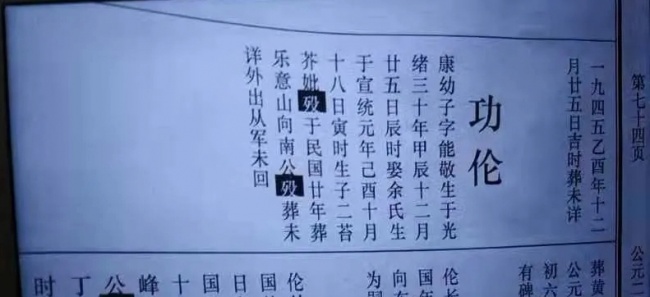 第七十四页
公元二
一九四五乙酉年十二
月廿五日吉时葬未详
功伦
康幼子字能敬生于光
绪三十年甲辰十二月
廿五日辰时娶余氏生
于宣统元年己酉十月
十八日寅时生子二苔
芥妣殁于民国廿年葬
乐意山向南公殁葬未
详外出从军未回
葬黄
公元
初六
有碑
伦长
国年
向
为
伦
国
日
国
十
峰
公
丁
时